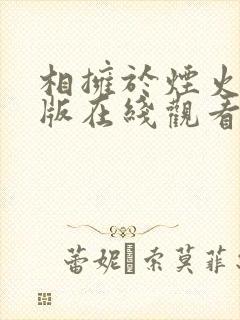 相擁於煙火
版在綫觀看
蕾妮 索莫菲